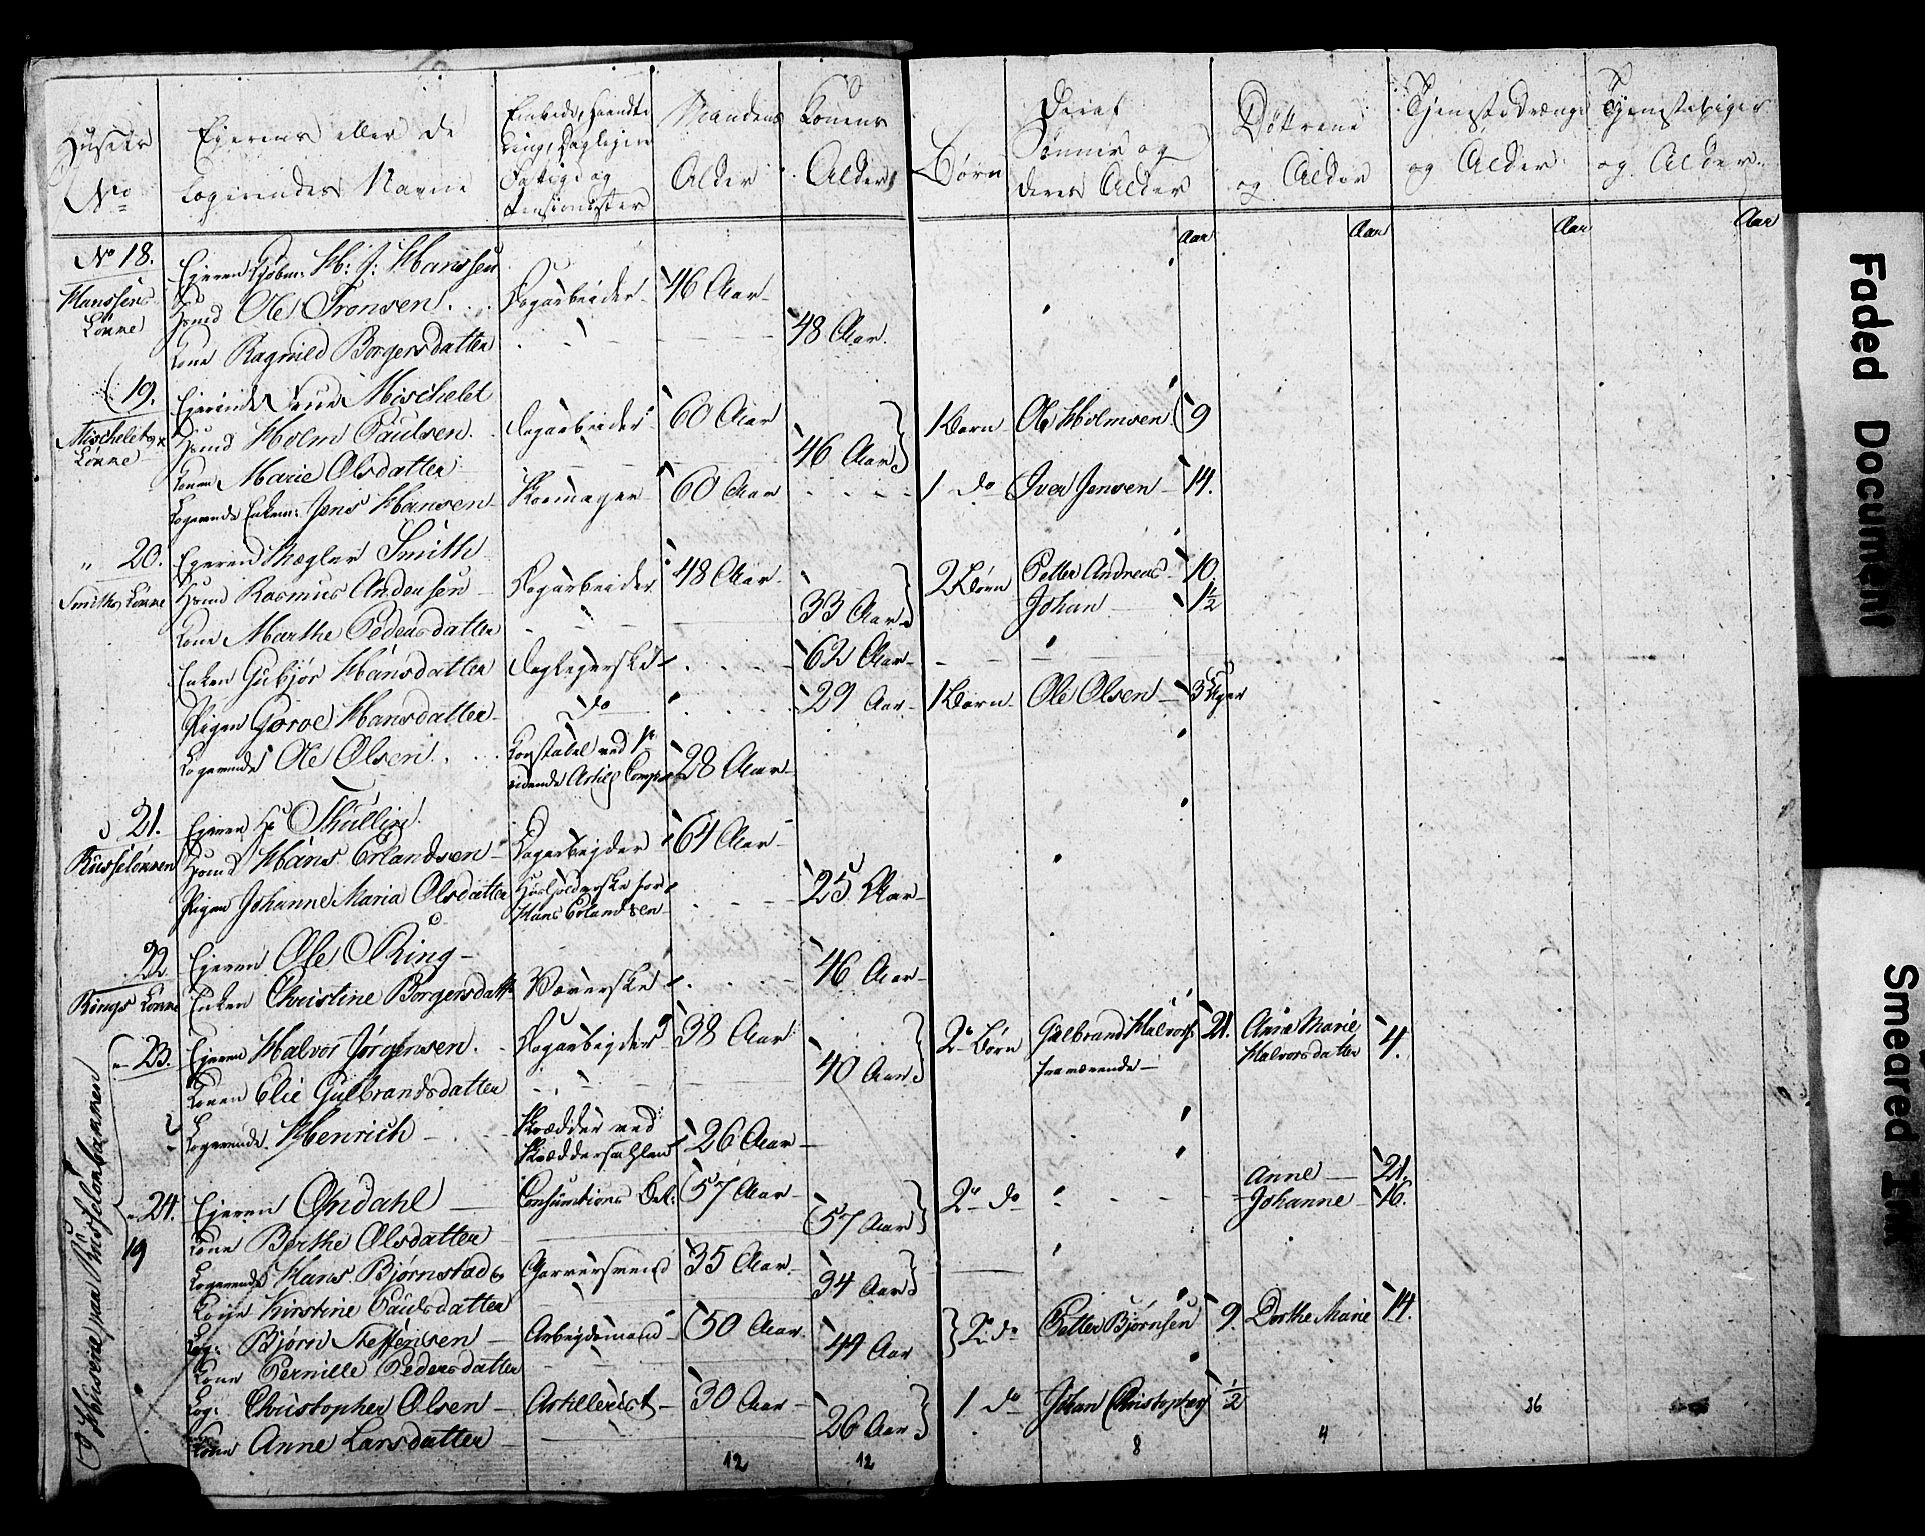 Husets No
Ejerens eller de Logerendes Navne
Embede, Haandtering, Dagleiere Fattige og Pensionister
Mandens Alder
Konens Alder
Børn
Deraf Sønner og deres Alder
Døttrene og Alder
Tjenestedrænge og Alder
Tjenestepiger og Alder
Aar Aar Aar Aar
No 18. Ejeren Kjøbm: H: J: Hanssen
Hanssens Løkke
Hmd Ole Tronsen. Dagarbeider 46 Aar
Kone Ragnild Borgersdatter 48 Aar.
19. Ejerinde Frue Mischelet
Mischelets Løkke
Hmd Holm Paulsen. Dagarbeider 60 Aar 1 Barn Ole Holmsen 9
Konen Marie Olsdatter 46 Aar
Logerende Enkem: Jens Hansen Skomager 60 Aar 1 do Iver Jensen 14.
" 20. Ejeren Mægler Smith
Smiths Løkke
Hmd Rasmus Andersen Dagarbeider 48 Aar 2 Børn Petter Andreas 10.
Johan 1½
Kone Marthe Pedersdatter 33 Aar
Enken Gubjør Hansdatter Daglejerske 62 Aar
Pigen Goroe Hansdatter do 29 Aar 1 Barn Ole Olsen 3 Uger
Logerende Ole Olsen. Konstabel ved ridende Artill Comp 28 Aar
21. Ejeren Hr Thulling.
Russeløkken
Hmd Hans Erlandsen Dagarbejder 64 Aar
Pigen Johanne Maria Olsdatter Huusholderske for Hans Erlandsen 25 Aar
22. Ejeren Ole Ring
Rings Løkke
Enken Christine Borgersdattr Væverske 46 Aar
23. Ejeren Halvor Jørgensen. Dagarbejder 38 Aar 2 Børn Gulbrand Halvors 21. Anne Marie Halvorsdatter 4.
fraværende
Konen Elie Gulbrandsdatter 40 Aar
Logerende Henrich Skrædder ved 26 Aar
Husene paa Russeløkbakken
24. Ejeren Opdahl Consumtions Bet: 57 Aar 2 do Anne 21.
Johanne 16.
19
Kone Berthe Olsdatter 57 Aar
Logerende Hans Bjørnstad Garversvend 35 Aar
Kone Kirstine Paulsdatter 34 Aar
Log: Bjørn Steffensen Arbejdsmand 50 Aar 2 do Petter Bjørnsen 9. Dorthe Marie 14.
Kone Pernille Pedersdatter 49 Aar
Log: Christopher Olsen Artillerist 30 Aar 1 do Johan Christopher ½
Kone Anne Larsdatter 26 Aar
12 12 8 4 36
Faded Document
Smeared Ink